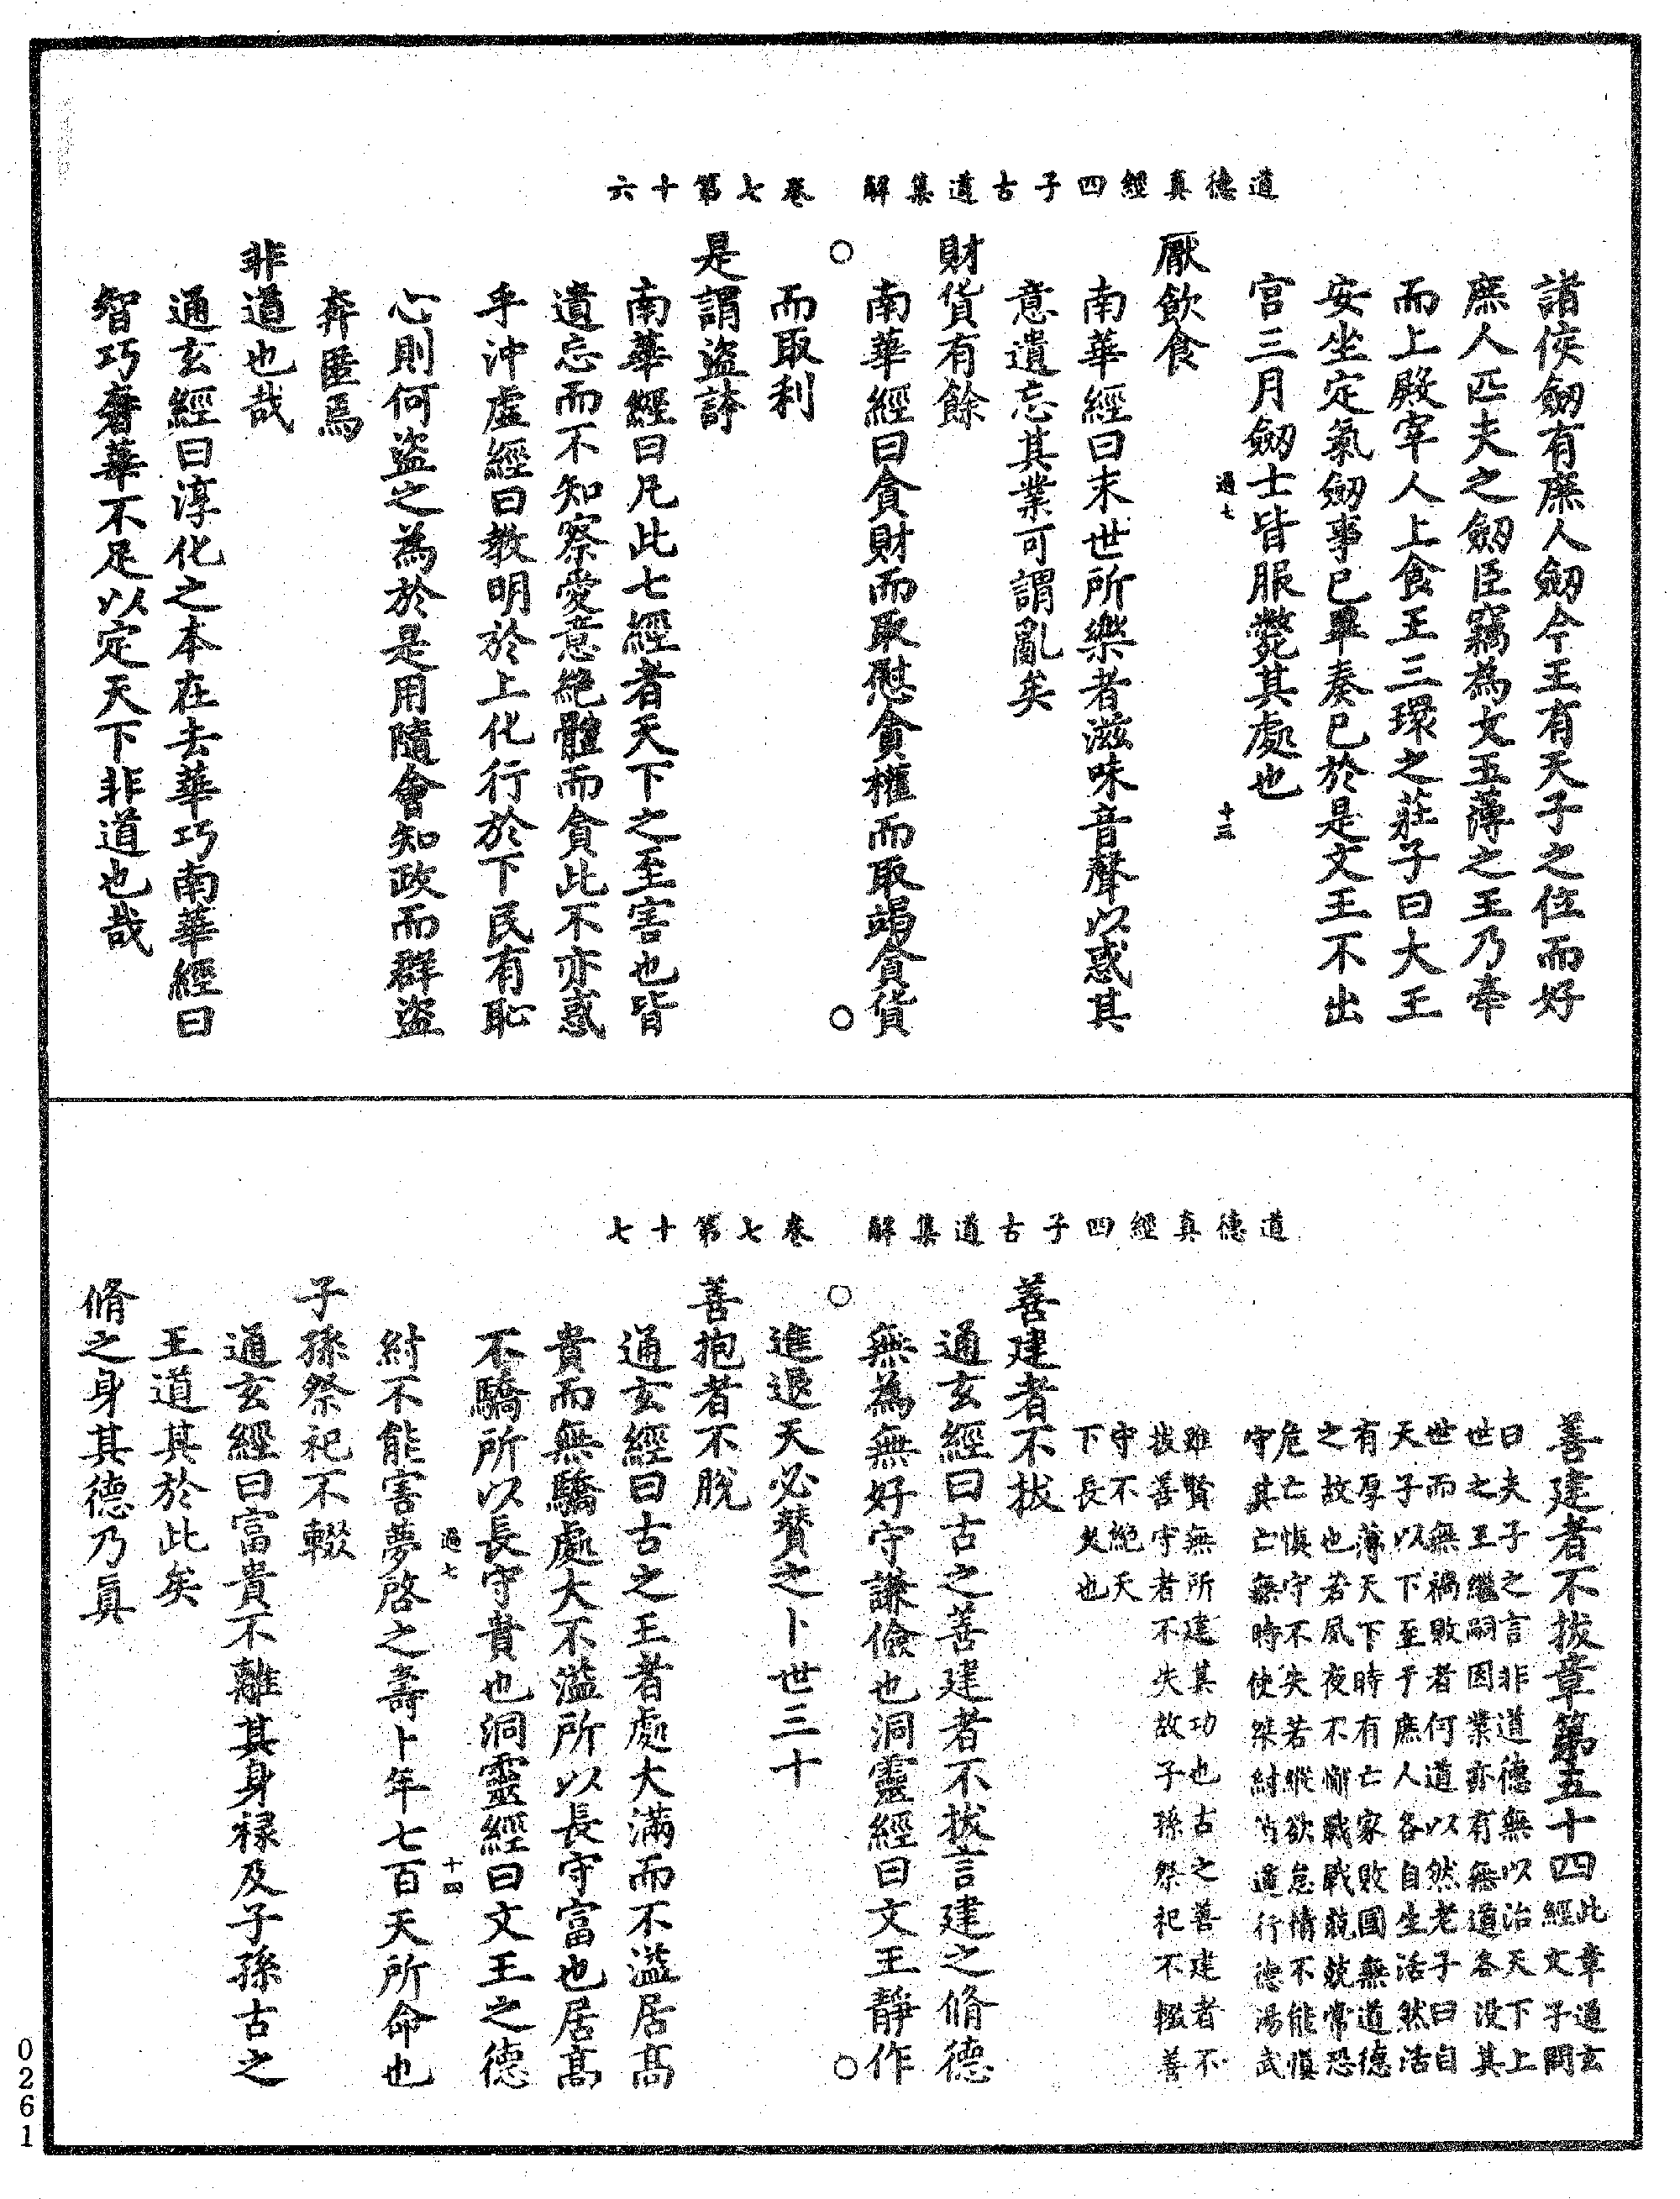 道德真經四子古道集解　卷七第十六
諸侯劒有庶人劒今王有天子之位而好
庶人匹夫之劒臣竊為大王薄之王乃牽
而上殿宰人上食王三環之莊子曰大王
安坐定氣劒事已畢奏已於是文王不出
宫三月劒士皆服斃其處也
過七
十三
厭飲食
南華經曰末世所樂者滋味音聲以惑其
意遺忘其業可謂亂矣
財貨有餘
南華經曰貪財而取慰貪權而取竭貪貨
而取利
○
○
是謂盜誇
南華經曰凡此七經者天下之至害也皆
遺忘而不知察愛意絕體而貪此不亦惑
乎沖虛經曰教明於上化行於下民有恥
心則何盜之為於是用隨會知政而群盜
奔匿焉
非道也哉
通玄經曰淳化之本在去華巧南華經曰
智巧奢華不足以定天下非道也哉
道德真經四子古道集解　卷七第十七
善建者不拔章第五十四
此章通玄
經文子問
曰夫子之言非道德無以治天下上
世之王繼嗣因業亦有無道各没其
世而無禍敗者何道以然老子曰自
天子以下至于庶人各自生活然活
有厚薄天下時有亡家敗國無道德
之故也若夙夜不懈戰戰兢兢常恐
危亡慎守不失若縱欲怠情不能慎
守其亡無時使桀紂脩道行德湯武
雖賢無所建其功也古之善建者不
拔善守者不失故子孫祭祀不輟善
守不絕天
下長久也
善建者不拔
通玄經曰古之善建者不拔言建之脩德
無為無好守謙儉也洞靈經曰文王靜作
進退天必贊之卜世三十
○
○
善抱者不脫
通玄經曰古之王者處大滿而不溢居髙
貴而無驕處大不溢所以長守富也居髙
不驕所以長守貴也洞靈經曰文王之德
過七
十四
紂不能害夢啓之壽卜年七百天所命也
子孫祭祀不輟
通玄經曰富貴不離其身禄及子孫古之
王道其於此矣
脩之身其德乃真
0261